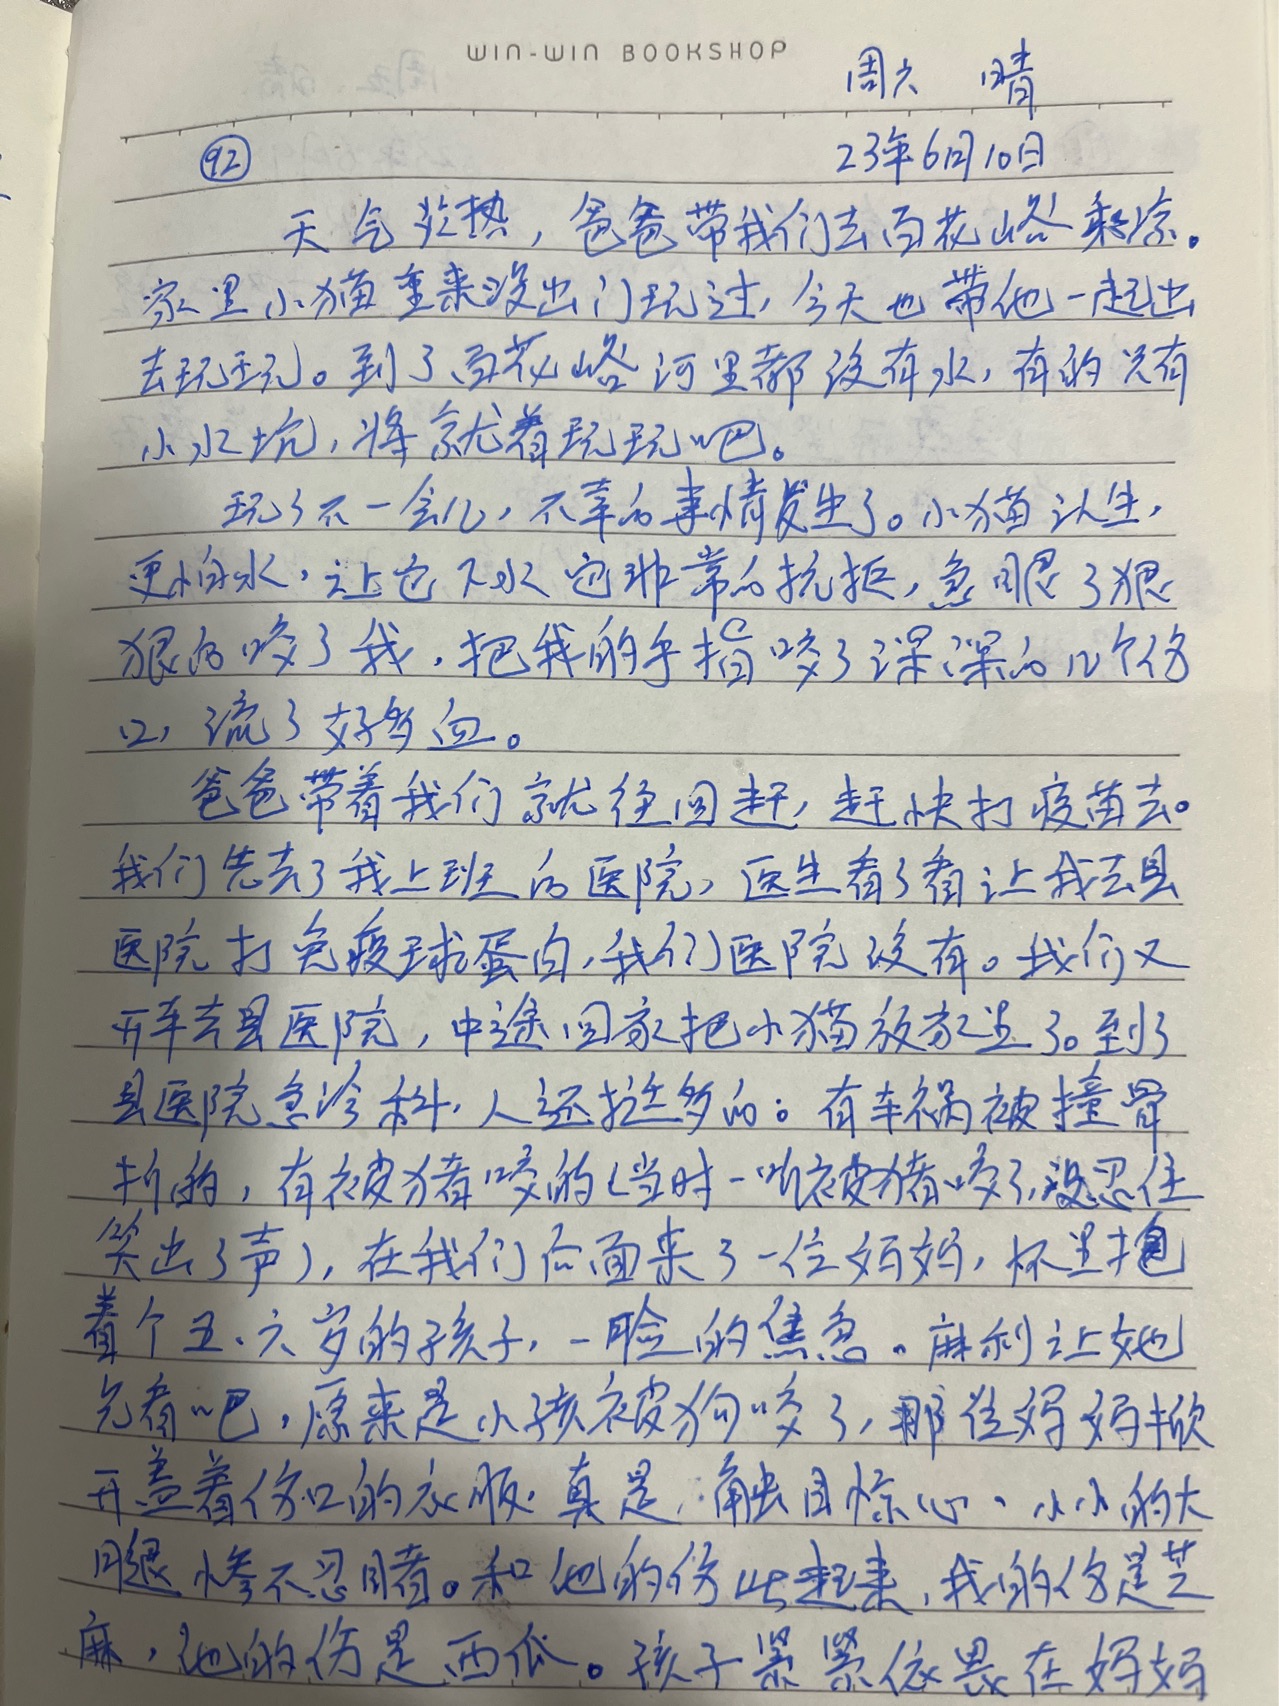 WIN-WIN BOOKSHOP
周六 晴
92 23年6月10日
天气炎热，爸爸带我们去百花峪乘凉。
家里小猫重来没出门玩过，今天也带他一起出
去玩玩。到了百花峪河里都没有水，有的只有
小水坑，将就着玩玩吧。
玩了不一会儿，不幸的事情发生了。小猫认生，
更怕水，让它下水它非常的抗拒，急眼了狠
狠的咬了我，把我的手指咬了深深的几个伤
口，流了好多血。
爸爸带着我们就往回赶，赶快打疫苗去。
我们先去了我上班的医院，医生看了看让我去县
医院打免疫球蛋白，我们医院没有。我们又
开车去县医院，中途回家把小猫放家里了。到了
县医院急诊科，人还挺多的：有车祸被撞骨
折的，有被猪咬的（当时一听被猪咬了，没忍住
笑出了声），在我们后面来了一位妈妈，怀里抱
着个五、六岁的孩子，一脸的焦急。麻利让她
先看吧，原来是小孩被狗咬了，那位妈妈掀
开盖着伤口的衣服，真是，触目惊心、小小的大
腿惨不忍睹。和他的伤比起来，我的伤是芝
麻，他的伤是西瓜。孩子紧紧依畏在妈妈